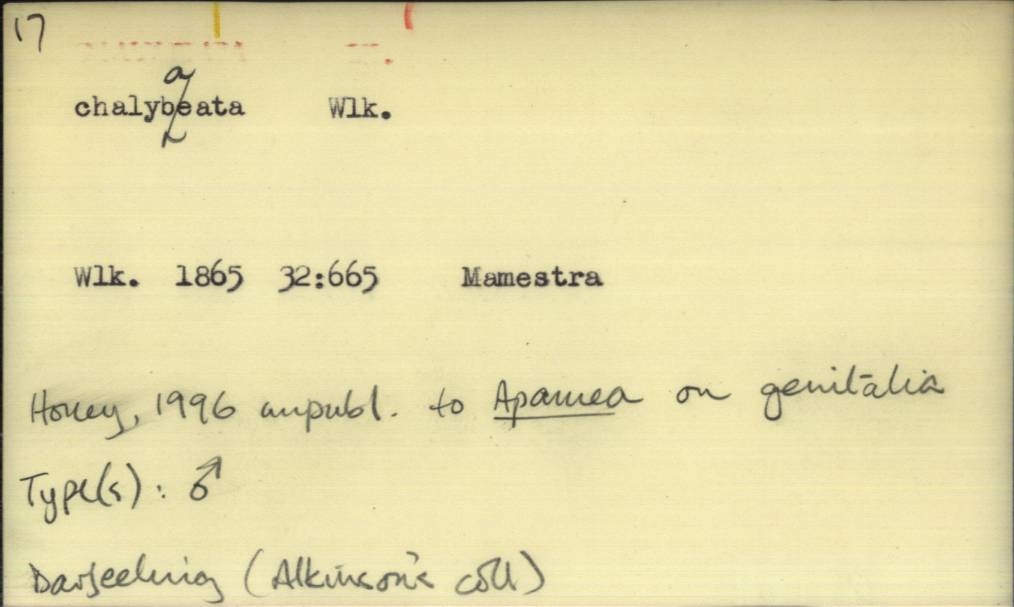 17
a
chalybeata Wlk.
Wlk. 1865 32:665 Mamestra
Honey, 1996 unpubl. to Apamea on genitalia
Type(s): ♂
Darjeeling (Atkinson's coll)